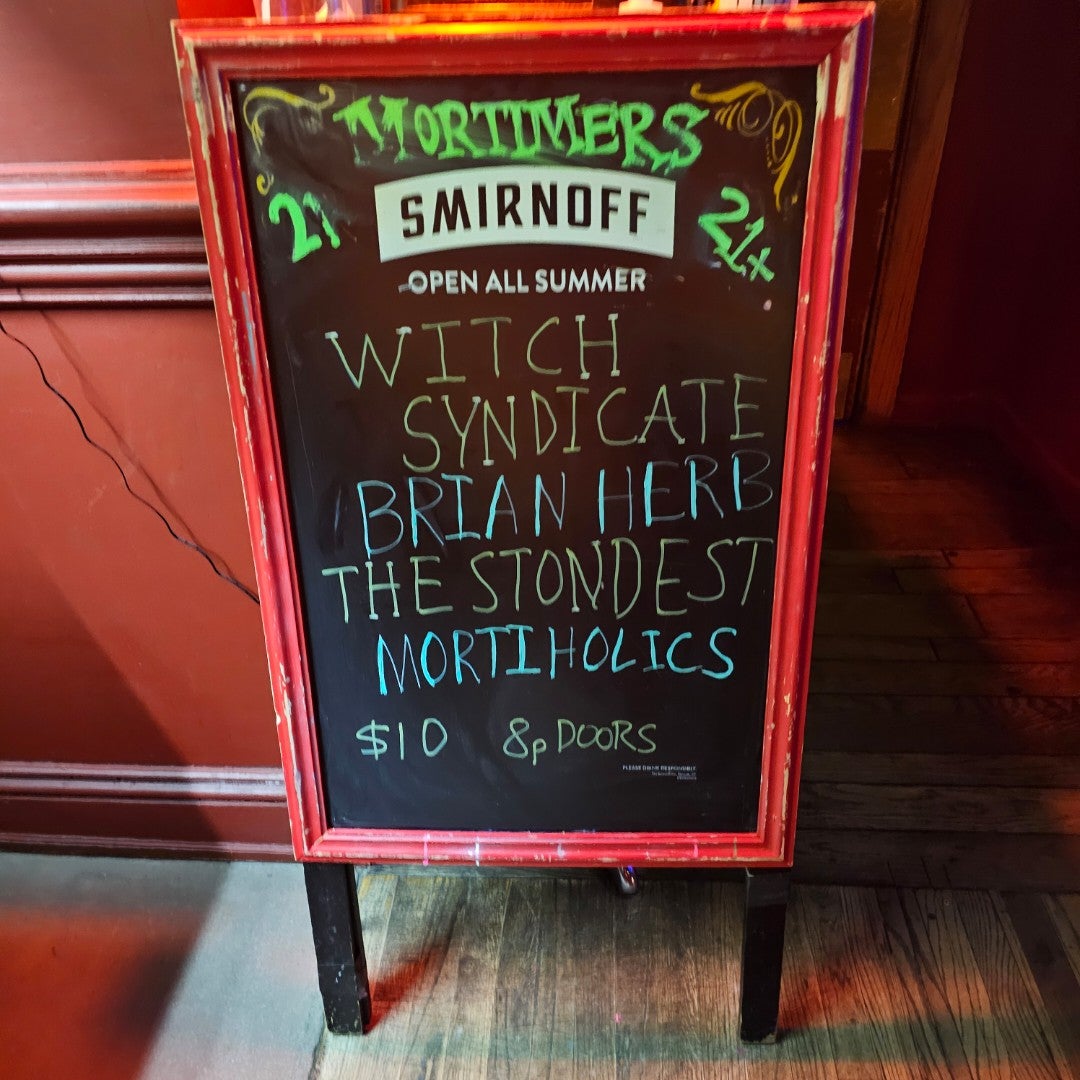 MORTIMERS
21 21+
SMIRNOFF
OPEN ALL SUMMER
WITCH
SYNDICATE
BRIAN HERB
THE STONDEST
MORTIHOLICS
$10 8p DOORS
PLEASE DRINK RESPONSIBLY.